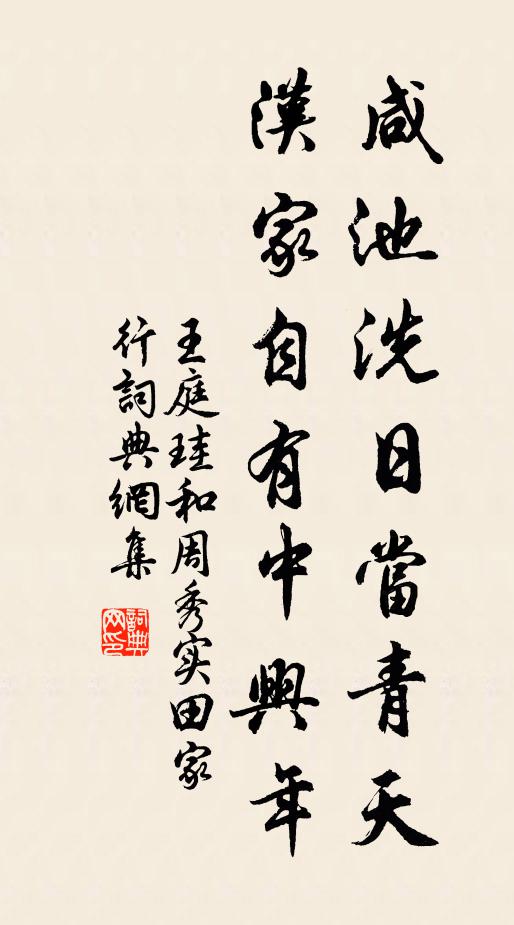 咸池洗日當青天
漢家自有中興年
王庭珪和周秀实田家
行詞典網集
詞典
网印